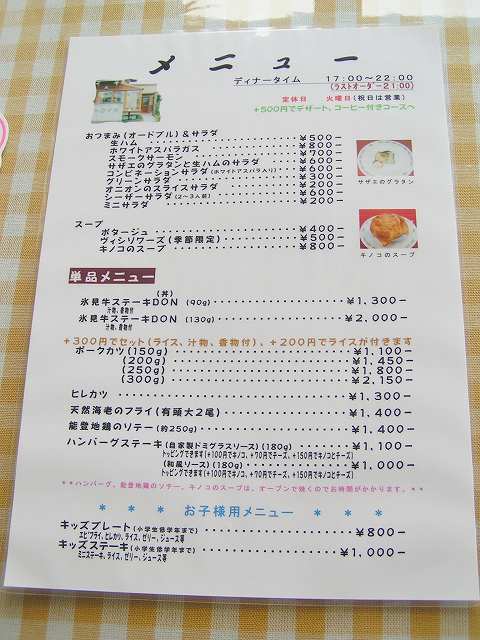 メニュー
ディナータイム 17:00～22:00
(ラストオーダー21:00)
定休日 火曜日(祝日は営業)
+500円でデザート、コーヒー付きコースへ
おつまみ(オードブル)&サラダ
生ハム ¥500-
ホワイトアスパラガス ¥800-
スモークサーモン ¥700-
サザエのグラタンと生ハムのサラダ ¥600-
コンビネーションサラダ(ホワイトアスパラ入り) ¥600-
グリーンサラダ ¥300-
オニオンのスライスサラダ ¥200-
シーザーサラダ(2～3人前) ¥600-
ミニサラダ ¥200-
サザエのグラタン
スープ
ポタージュ ¥400-
ヴィシソワーズ(季節限定) ¥500-
キノコのスープ ¥800-
キノコのスープ
単品メニュー
(丼)
氷見牛ステーキDON (90g) ¥1,300-
汁物、香物付
氷見牛ステーキDON (130g) ¥2,000-
汁物、香物付
+300円でセット(ライス、汁物、香物付)、+200円でライスが付きます
ポークカツ(150g) ¥1,100-
(200g) ¥1,450-
(250g) ¥1,800-
(300g) ¥2,150-
ヒレカツ ¥1,300-
天然海老のフライ(有頭大2尾) ¥1,400-
能登地鶏のソテー(約250g) ¥1,400-
ハンバーグステーキ(自家製ドミグラスソース)(180g) ¥1,100-
トッピングできます(+100円でキノコ、+70円でチーズ、+150円でキノコとチーズ)
(和風ソース)(180g) ¥1,000-
トッピングできます(+100円でキノコ、+70円でチーズ、+150円でキノコとチーズ)
**ハンバーグ、能登地鶏のソテー、キノコのスープは、オーブンで焼くのでお時間がかかります。**
* * * お子様用メニュー * * *
キッズプレート(小学生低学年まで) ¥800-
エビフライ、ヒレカツ、ライス、ゼリー、ジュース等
キッズステーキ(小学生低学年まで) ¥1,000-
ミニステーキ、ライス、ゼリー、ジュース等